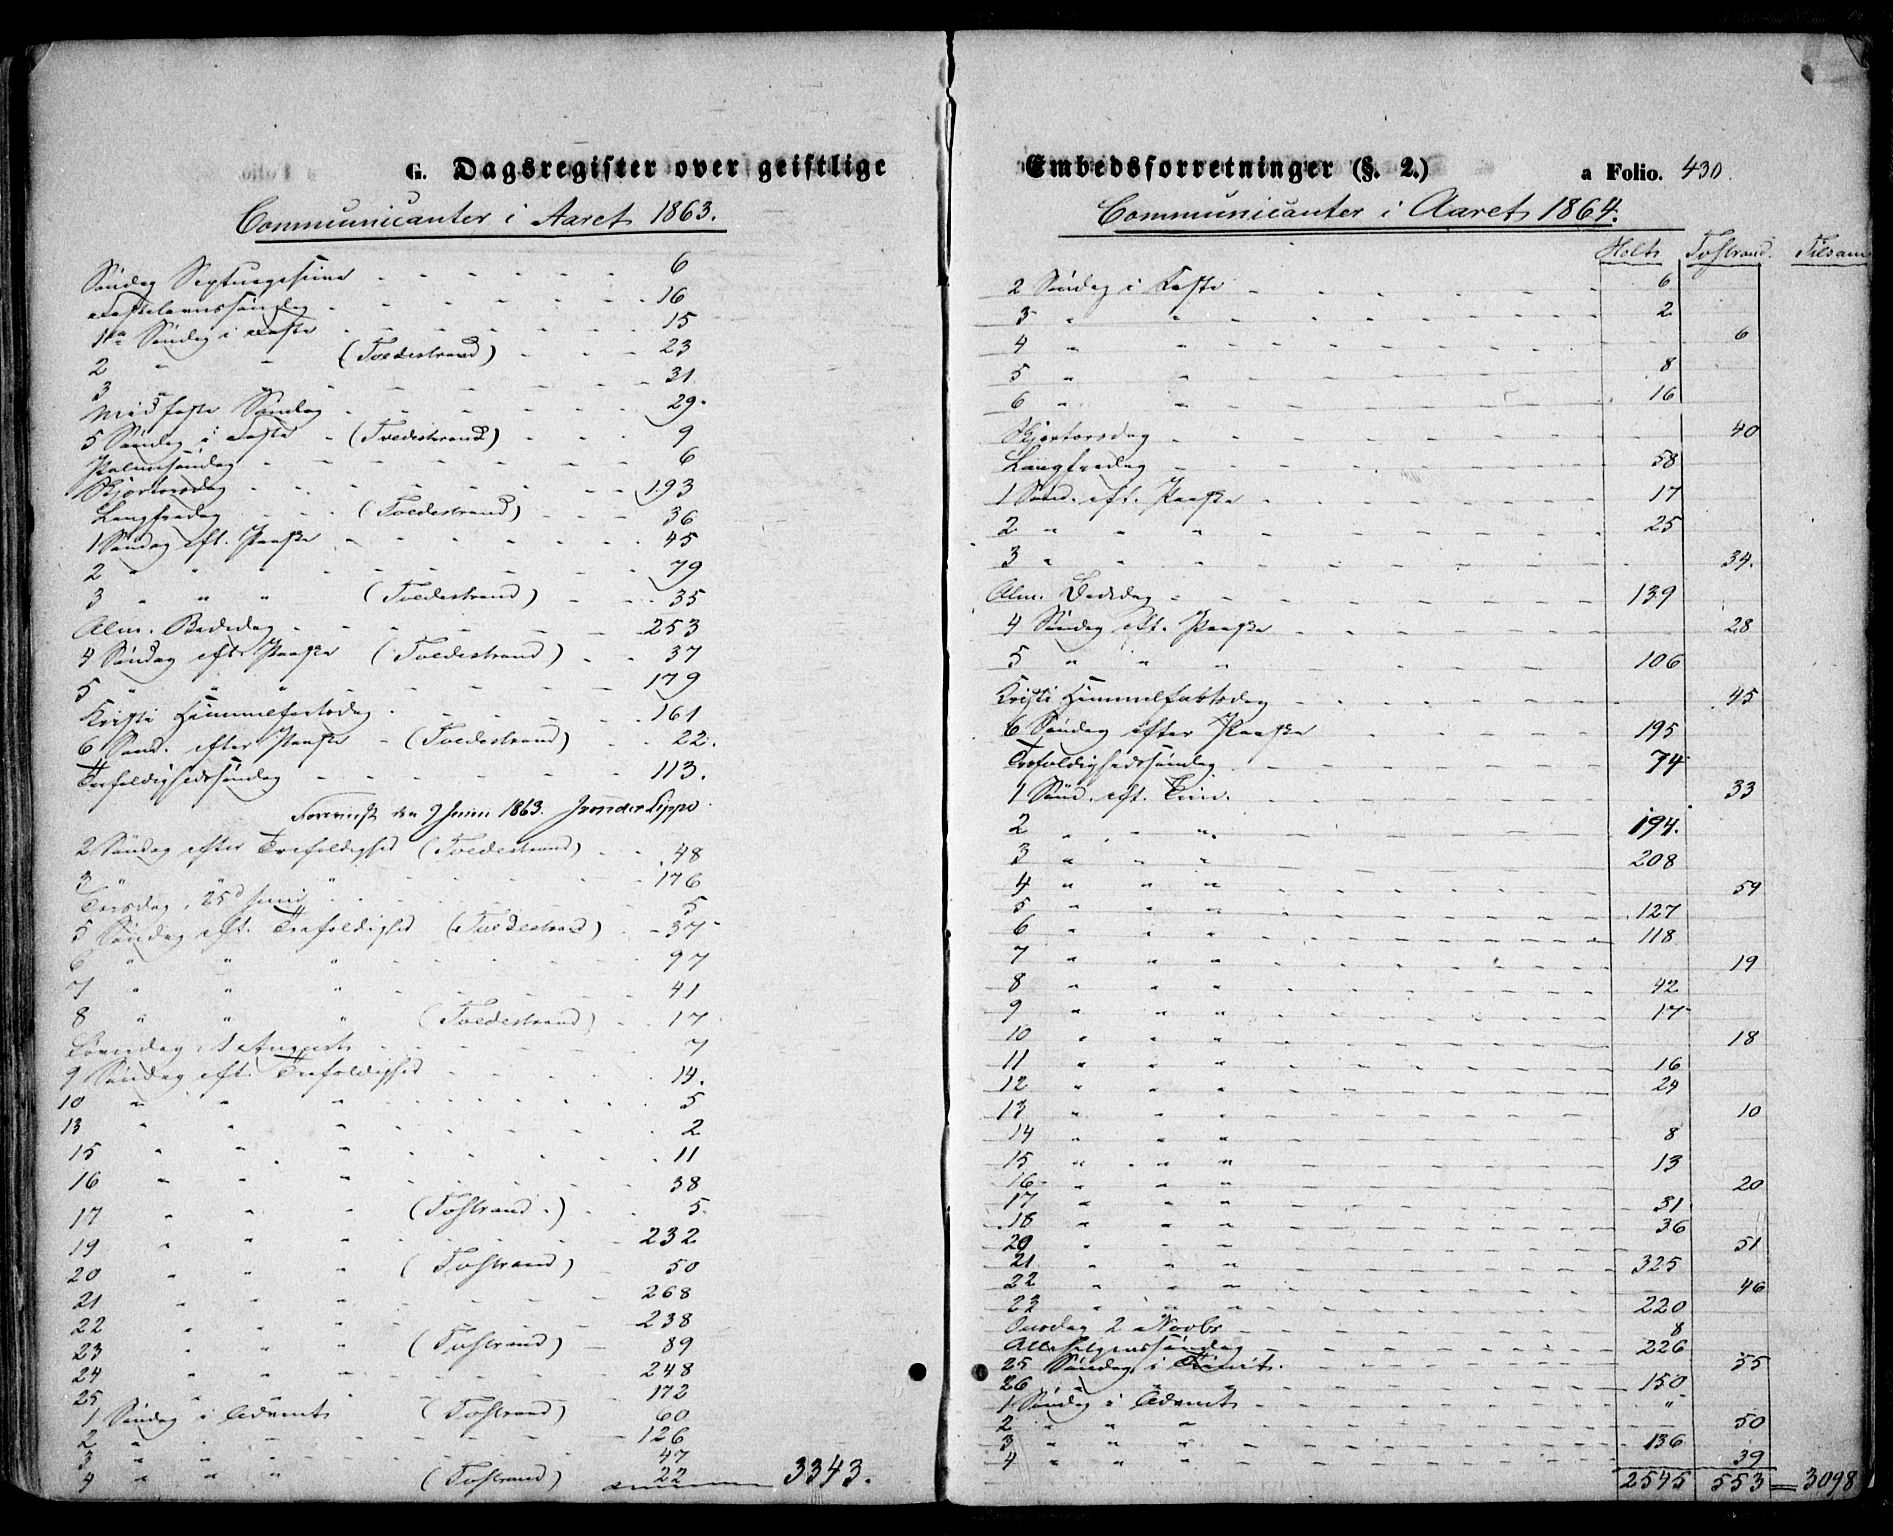 G. Dagsregister over geistlige
Communicanter i Aaret 1863.
Søndag Septuagesima - - - - - 6
Fastelavnssøndag - - - - - 16
1ste Søndag i Faste - - - - - 15
2 " - (Tvedestrand) - - 23
3 " - - - - - 31
Midfaste Søndag - - - - - 29.
5 Søndag i Faste - (Tvedestrand) - - - 9
Palmesøndag - - - - - 6
Skjærtorsdag - - - - - 193
Langfredag - - - (Tvedestrand) - - - 36
1 Søndag eft. Paaske - - - - - 45
2 " " " - - - - - 79
3 " " " (Tvedestrand) - - 35
Alm. Bededag - - - - - 253
4 Søndag efter Paaske (Tvedestrand) - - 37
5 " " " - - - - - 179
Kristi Himmelfartsdag - - - - - 161
6 Sønd. efter Paaske - (Tvedestrand) - - 22.
Trefoldighedssøndag - - - - - 113.
den 9 Juni 1863.
2 Søndag efter Trefoldighed (Tvedestrand) - - 48
3 " " " - - - - - 176
Torsdag, 25d Juni - - - - - 5
5 Søndag eft. Trefoldighed (Tvedestrand) - - 37
6 " " " - - - - - 97
7 " " " - - - - - 41
8 " " " (Tvedestrand) - - 17
Løverdag, 1 August - - - - - 7
9 Søndag eft. Trefoldighed - - - - - 14.
10 " " " - - - - - 5
13 " " " - - - - - 2
15 " " " - - - - - 11
16 " " " - - - - - 38
17 " " " (Tvstrand.) - - 5
19 " " " - - - - - 232
20 " " " (Tvstrand) - 50
21 " " " - - - - - 268
22 " " " - - - - - 238
23 " " " (Tvstrand) - 89
24 " " " - - - - - 248
25 " " " - - - - - 172
1 Søndag i Advent (Tvstrand) 60
2 " " " - - - - - 126
3 " " " - - - - - 47
4 " " " (Tvstrand) 22 3343.
Embedsforretninger (§. 2.) a Folio. 430.
Communicanter i Aaret 1864.
Holt Tvstrand. Tilsam
2 Søndag i Faste - - - - - 6
3 " " - - - - - 2
4 " " - - - - - 6
5 " " - - - - - 8
6 " " - - - - - 16
Skjærtorsdag - - - - - 40
Langfredag - - - - - 58
1 Sønd. eft. Paaske - - - - - 17
2 " " " - - - - - 25
3 " " " - - - - - 34.
Alm. Bededag - - - - - 139
4 Søndag eft. Paaske - - - - - 28
5 " " " - - - - - 106
Kristi Himmelfartsdag - - - - - 45
6 Søndag efter Paaske - - - - - 195
Trefoldighedssøndag - - - - - 74
1 Sønd. eft. Trin. - - - - - 33
2 " " " 194.
3 " " " 208
4 " " " - - - - - 59
5 " " " - - - - - 127
6 " " " - - - - - 118
7 " " " - - - - - 19
8 " " " - - - - - 42
9 " " " - - - - - 17
10 " " " - - - - - 18
11 " " " - - - - - 16
12 " " " - - - - - 24
13 " " " - - - - - 10
14 " " " - - - - - 8
15 " " " - - - - - 13
16 " " " - - - - - 20
17 " " " - - - - - 31
18 " " " - - - - - 36
20 " " " - - - - - 51
21 " " " - - - - - 325
22 " " " - - - - - 46
23 " " " - - - - - 220
Onsdag 2 Novbr - - - - - 8
Allehelgenssøndag - - - - - 226
25 Søndag i Trinit. - - - - - 55
26 " " " - - - - - 150
1 Søndag i Advent - - - - - "
2 " " " - - - - - 50
3 " " " - - - - - 136
4 " " " - - - - - 39
2545 553 = 3098